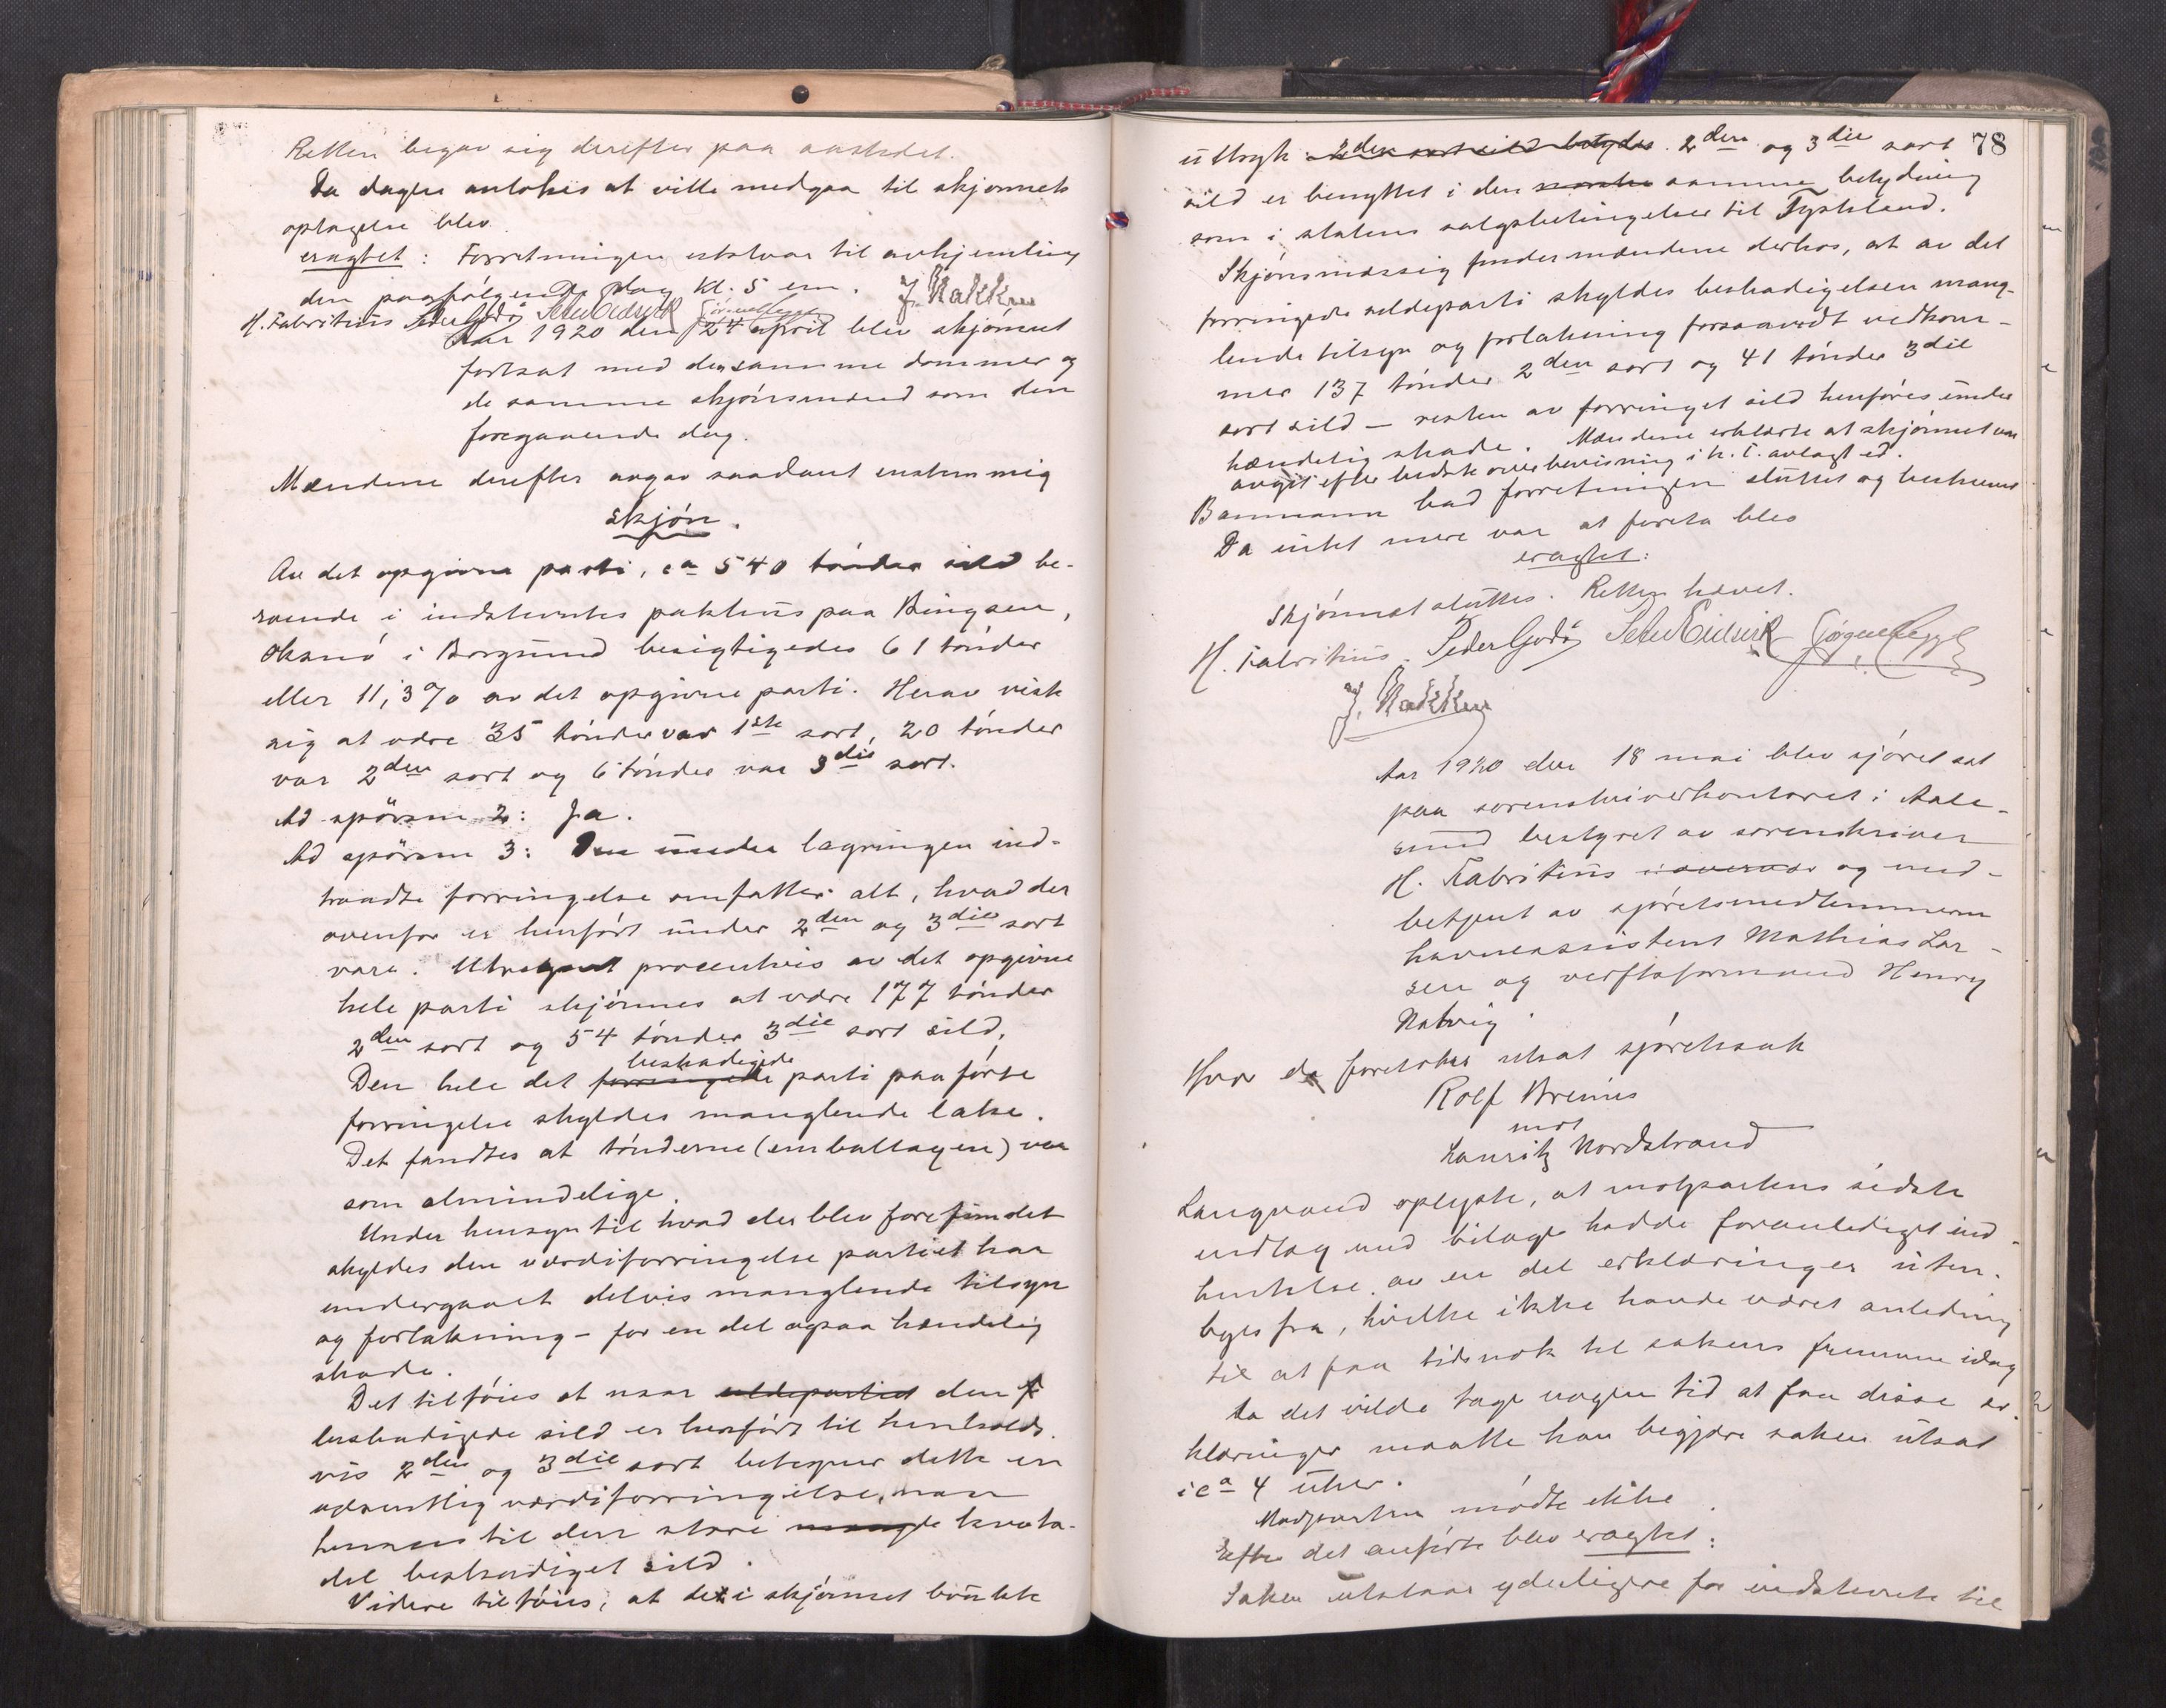 Retten begav sig derefter paa aastedet.
Da dagen antokes at ville medgaa til skjønnets
optagelse blev
eragtet: Forretningen utstaar til avhjemling
den paafølgende dag kl. 5 em. J. Nakken
H. Fabritius Peder Godø Peter Eidsvik
Aar 1920 den 24 april blev skjønnet
fortsat med den samme dommer og
de samme skjønsmænd som den
foregaaende dag.
Mændene derefter avgav saadant enstemmig
skjøn.
Av det opgivne parti, ca 540 tønder sild be-
roende i indstevntes pakhus paa Bingsen,
Oksnø i Borgund besigtigedes 61 tønder
eller 11,3% av det opgivne parti. Herav viste
sig at være 35 tønder var 1ste sort, 20 tønder
var 2den sort og 6 tønder var 3die sort.
Ad spørsm 2: Ja.
Ad spørsm 3: Den under lagringen ind-
traadte forringelse omfatter alt, hvad der
ovenfor er henført under 2den og 3die sort
vare. Utregnet procentvis av det opgivne
hele parti skjønnes at være 177 tønder
2den sort og 54 tønder 3die sort sild.
beskadigede
Den hele det forringede parti paaførte
forringelse skyldes manglende lake.
Det fandtes at tønderne (emballagen) var
som almindelige.
Under hensyn til hvad der blev forefundet
skyldes den værdiforringelse partiet har
undergaaet delvis manglende tilsyn
og forlakning - for en del ogsaa hændelig
skade.
Det tilføies at naar sildepartiet den f
beskadigede sild er henført til henholds-
vis 2den og 3die sort betegner dette en
væsentlig værdiforringelse, man
henser til den store mængde kvota-
del beskadiget sild.
Videre tilføies, at det i skjønnet brukte
78
uttryk 2den sort sild betydes 2den og 3die sort
sild er benyttet i den norske samme betydning
som i statens salgsbetingelser til Tyskland.
Skjønsmæssig finder mændene derhos, at av det
forringede sildeparti skyldes beskadigelsen mang-
lende tilsyn og forlakning forsaavidt vedkom-
mer 137 tønder 2den sort og 41 tønder 3die
sort sild — resten av forringet sild henføres under
hændelig skade. Mændene erklærte at skjønnet var
avgit efter bedste overbevisning i h. t. avlagt ed.
Bammann bad forretningen sluttet og beskreven
Da intet mere var at foreta blev
eragtet:
Skjønnet sluttes. Retten hævet.
H. Fabritius. Peder Godø Peter Eidsvik
J. Nakken
Aar 1920 den 18 mai blev sjøret sat
paa sorenskriverkontoret i Aale-
sund bestyret av sorenskriver
H. Fabritius og med-
betjent av sjøretsmedlemmerne
havneassistent Mathias Lar-
sen og verftsformand Henry
Natvig.
Hvor da foretokes utsat sjøretssak
Rolf Breines
mot
Lauritz Nordstrand
Langvand oplyste, at motpartens sidste
indlæg med bilage hadde foranlediget ind-
hentelse av en del erklæringer uten-
byes fra, hvilke ikke havde været anledning
til at faa tidsnok til sakens fremme idag
Da det vilde tage nogen tid at faa disse er-
klæringer maatte han begjære saken utsat
i ca 4 uker.
Modparten mødte ikke.
Efter det anførte blev eragtet:
Saken utstaar yderligere for indstevnte til